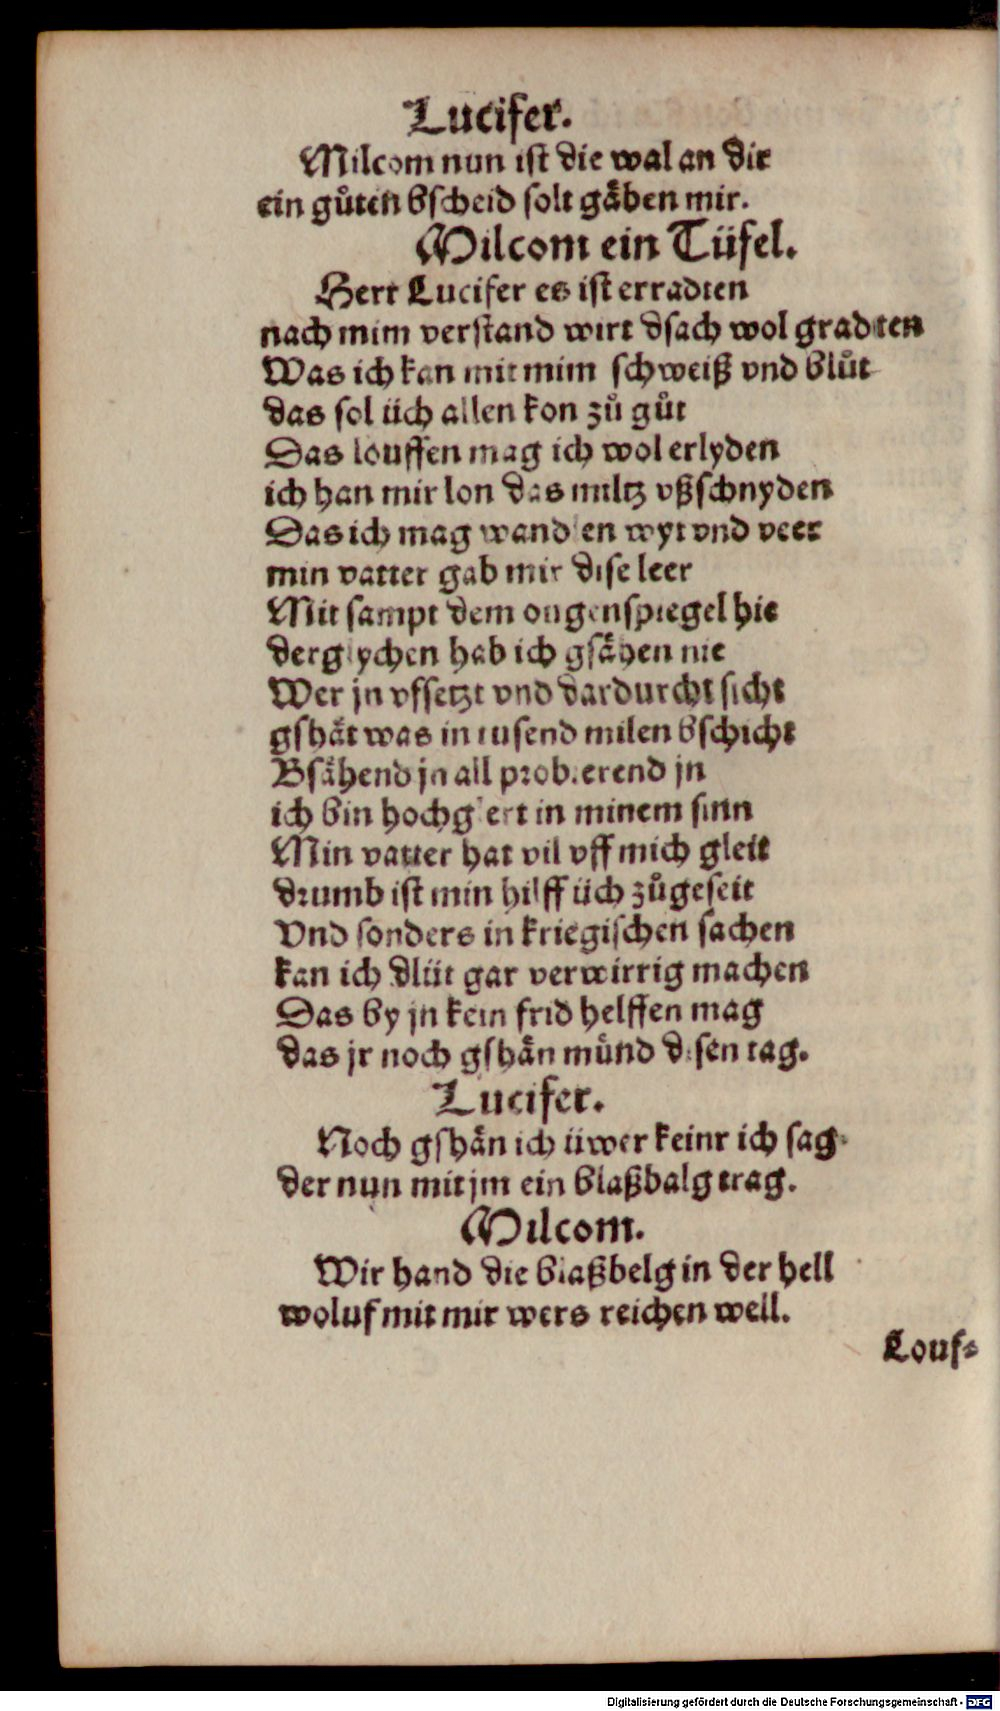 Lucifer.
Milcom nun ist die wal an dir
ein guͦten bscheid solt gaͤben mir.
Milcom ein Tüfel.
Herr Lucifer es ist erradten
nach mim verstand wirt dsach wol gradten
Was ich kan mit mim schweiß vnd bluͦt
das sol üch allen kon zuͦ guͦt
Das louffen mag ich wol erlyden
ich han mir lon das miltz vßschnyden
Das ich mag wandlen wyt vnd veer
min vatter gab mir dise leer
Mit sampt dem ougenspiegel hie
derglychen hab ich gsaͤhen nie
Wer jn vffsetzt vnd dardurcht sicht
gshaͤt was in tusend milen bschicht
Bsaͤhend jn all probierend jn
ich bin hochglert in minem sinn
Min vatter hat vil vff mich gleit
drumb ist min hilff üch zuͦgeseit
Vnd sonders in kriegischen sachen
kan ich dlüt gar verwirrig machen
Das by jn kein frid helffen mag
das jr noch gshaͤn muͤnd disen tag.
Lucifer.
Noch gshaͤn ich üwer keinr ich sag
der nun mit jm ein blaßbalg trag.
Milcom.
Wir hand die blaßbelg in der hell
woluf mit mir wers reichen well.
Louf⸗
Digitalisierung gefördert durch die Deutsche Forschungsgemeinschaft - DFG